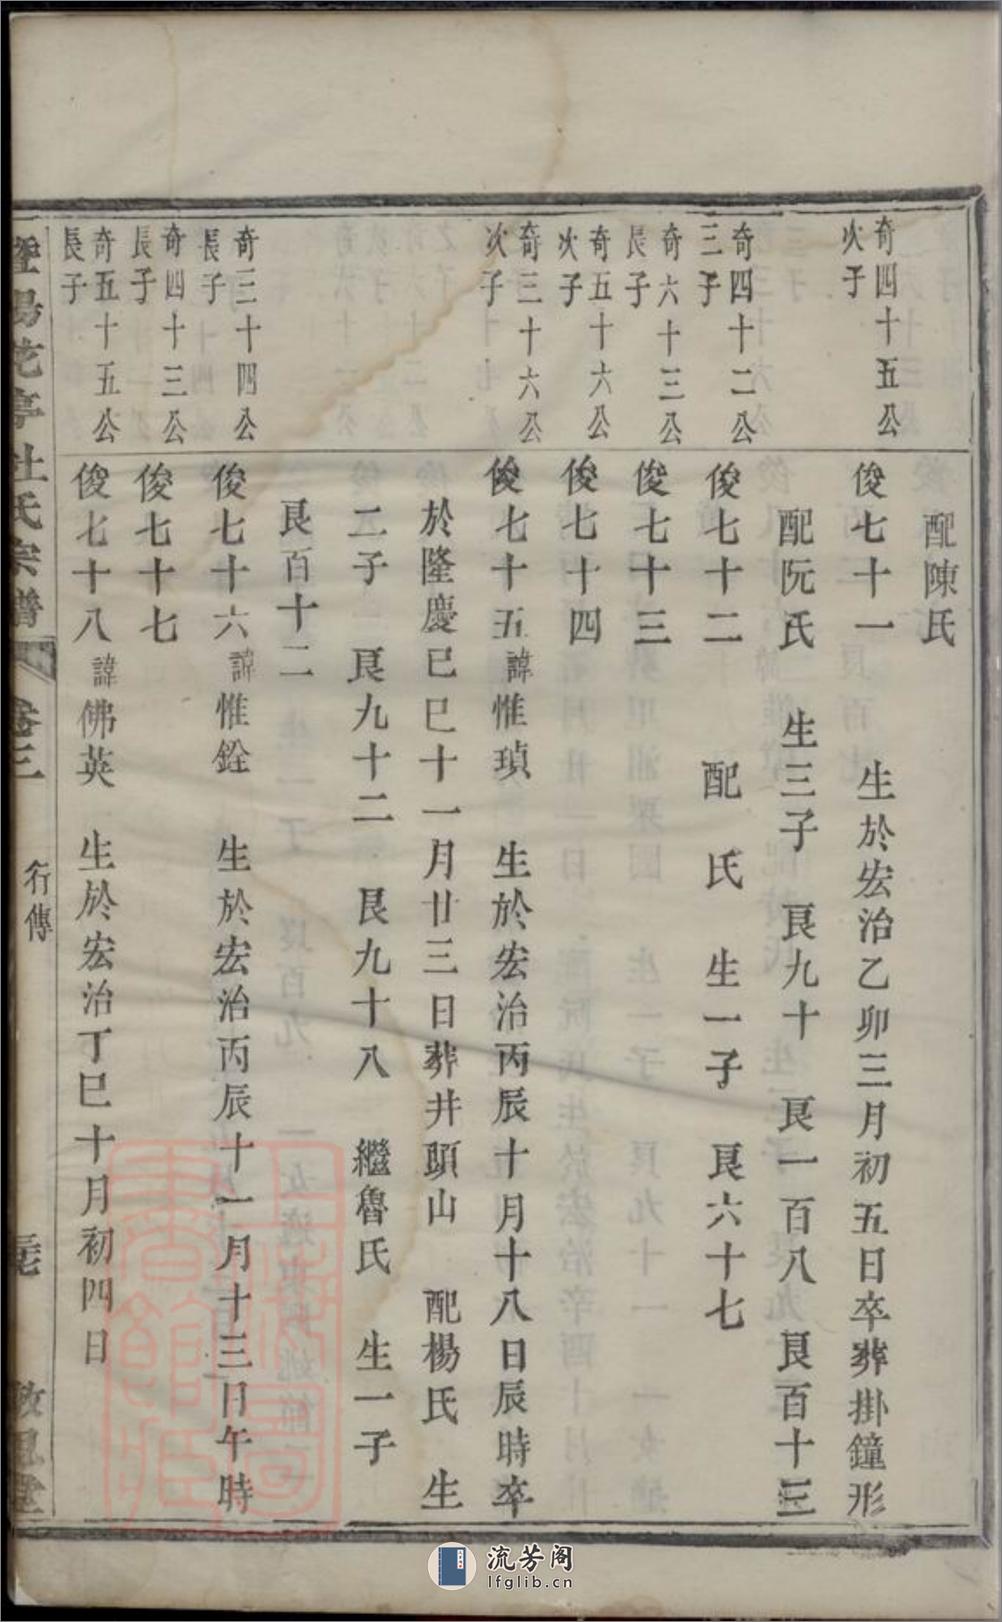 配陳氏
奇四十五公
次子
俊七十一　生於宏治乙卯三月初五日卒葬掛鐘形
配阮氏　生三子　良九十　良一百八　良百十三
奇四十二公
三子
俊七十二　配　氏　生一子　良六十七
奇六十三公
長子
俊七十三
奇五十六公
次子
俊七十四
奇三十六公
次子
俊七十五諱惟瑱　生於宏治丙辰十月十八日辰時卒
於隆慶己巳十一月廿三日葬井頭山　配楊氏　生
二子　良九十二　良九十八　繼魯氏　生一子
良百十二
奇三十四公
長子
俊七十六諱惟銓　生於宏治丙辰十一月十三日午時
奇四十三公
長子
俊七十七
奇五十五公
長子
俊七十八諱佛英　生於宏治丁巳十月初四日
暨陽花亭杜氏宗譜　卷三　行傳
流芳阁
lfglib.cn